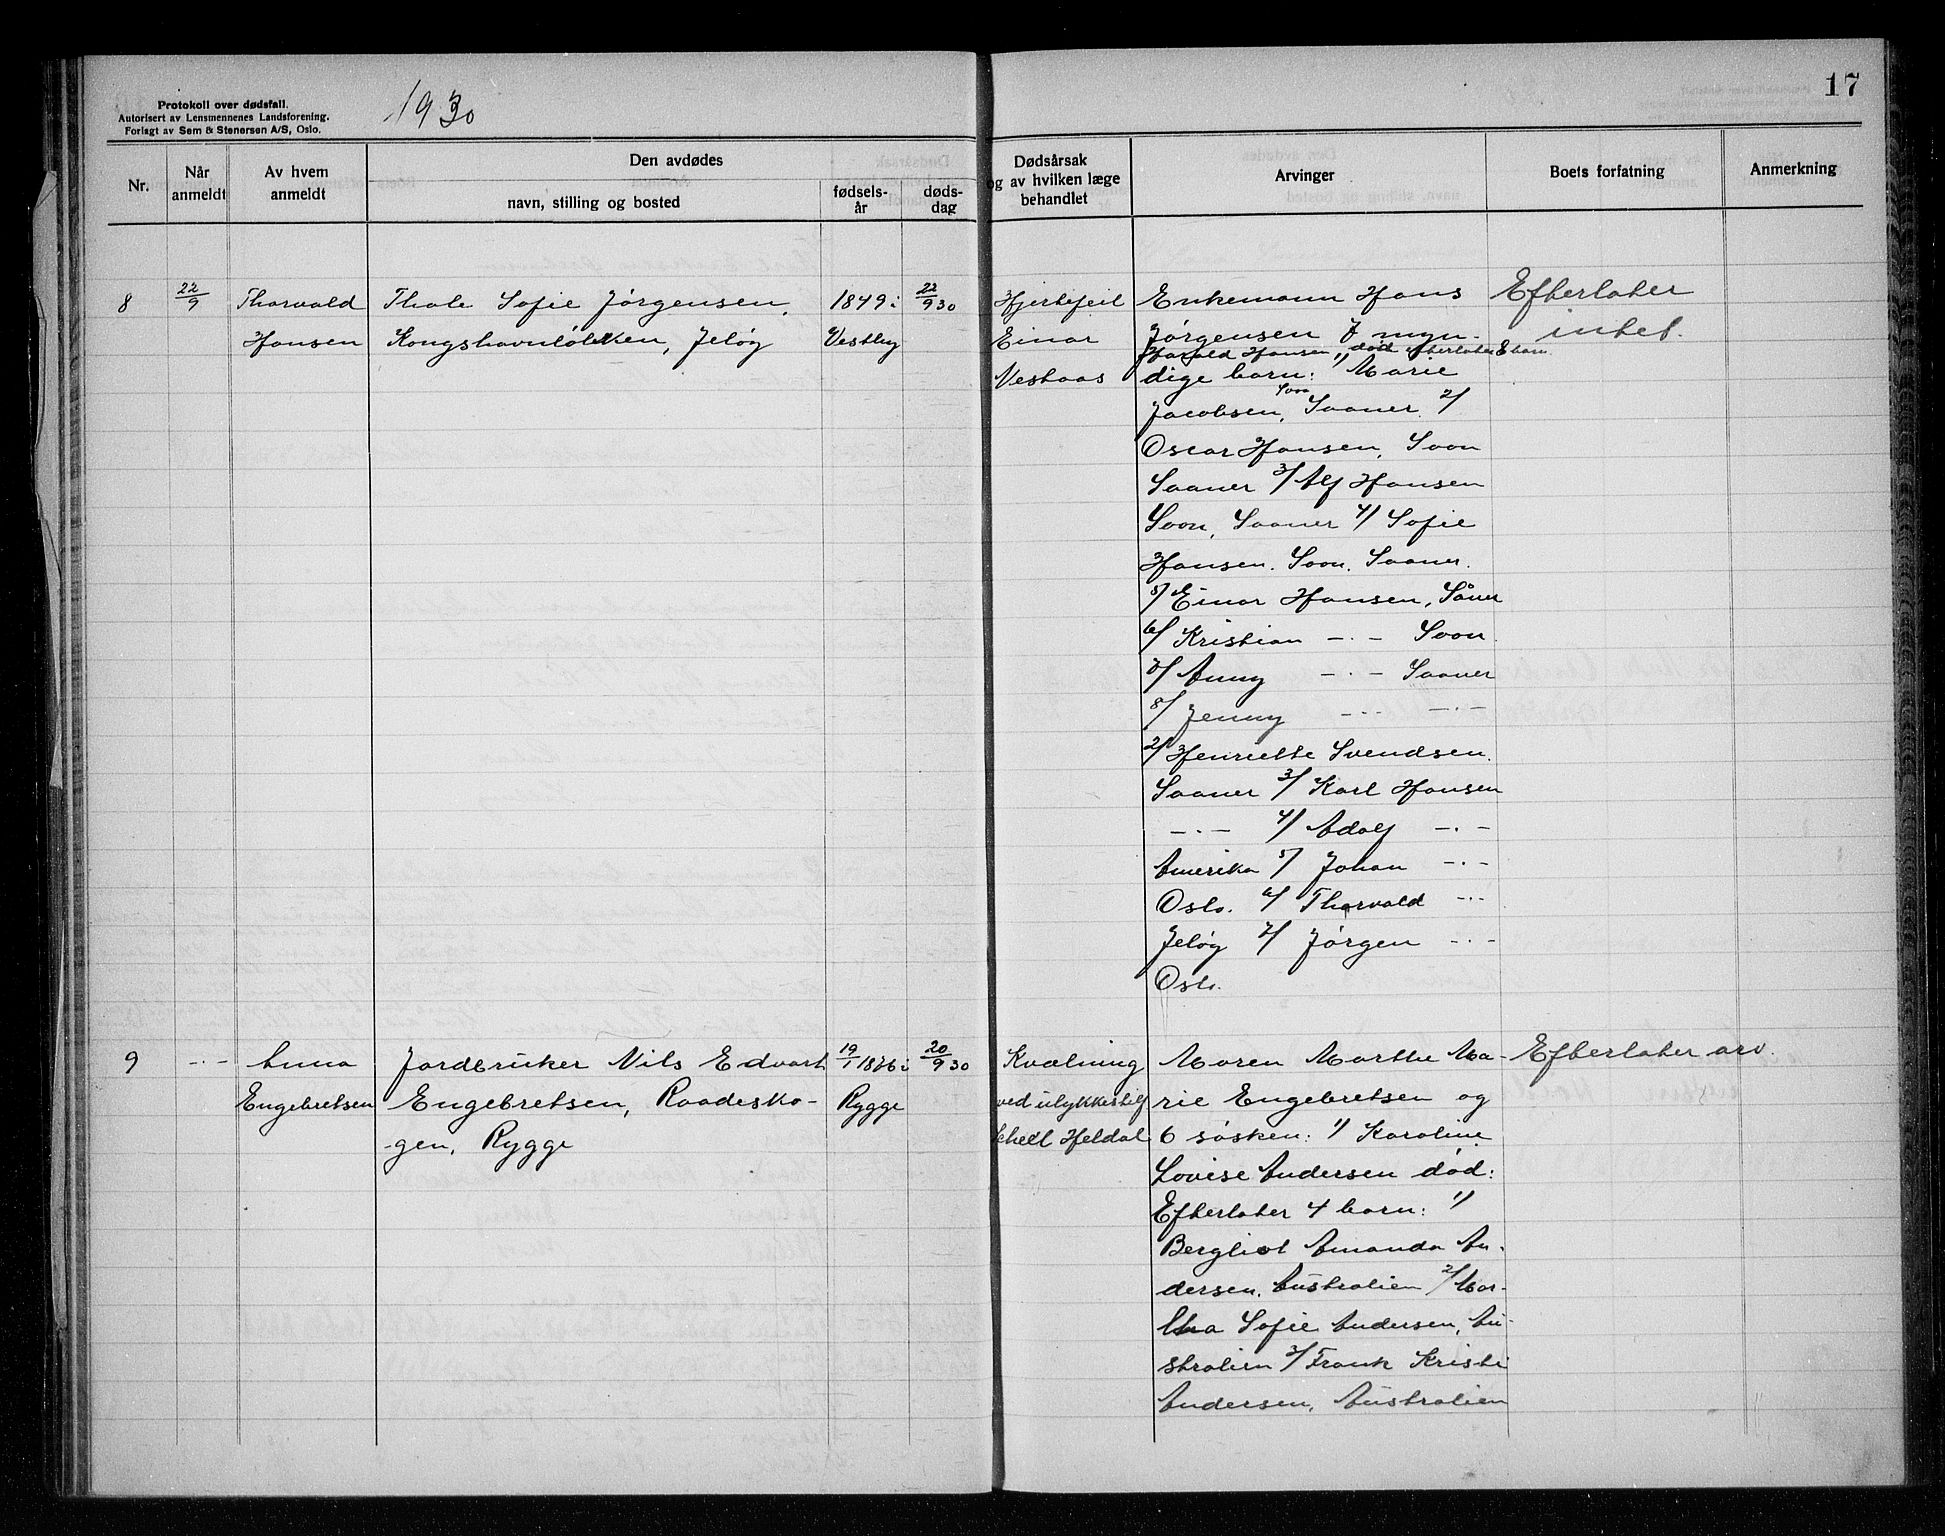 Protokoll over dødsfall.
Autorisert av Lensmennenes Landsforening.
Forlagt av Sem & Stenersen A/S, Oslo.
1930
17
Nr.
Når anmeldt
Av hvem anmeldt
Den avdødes
navn, stilling og bosted
fødsels-år
døds-dag
Dødsårsak og av hvilken læge behandlet
Arvinger
Boets forfatning
Anmerkning
8
22/9
Thorvald
Hansen
Thale Sofie Jørgensen,
Kongshavnløkken, Jeløy
1849 i
Vestby
22/9 30
Hjertefeil
Einar
Vestaas
Enkemann Hans
Jørgensen 7 myn-
Harald Hansen, død efterlater 8 barn.
dige barn: 1/ Marie
Jacobsen, Soon Saaner. 2/
Oscar Hansen, Soon
Saaner 3/ Alf Hansen
Soon, Saaner 4/ Sofie
Hansen. Soon. Saaner.
5/ Einar Hansen, Såner
6/ Kristian -"- Soon.
7/ Anny -"- Saaner
8/ Jenny -"- -"-
2/ Henriette Svendsen.
Saaner 3/ Karl Hansen
-"- 4/ Adolf -"-
Amerika 5/ Johan -"-
Oslo. 6/ Thorvald -"-
Jeløy 7/ Jørgen -"-
Oslo.
Efterlater
intet.
9
-"-
Anna
Engebretsen
Jordbruker Nils Edvart
Engebretsen, Raadesko-
-gen, Rygge
19/1 1876 i
Rygge
20/9 30
Kvælning
ved ulykkestilf
Heldal
Maren Marthe Ma-
rie Engebretsen og
6 søsken: 1/ Karoline
Lovise Andersen død:
Efterlater 4 barn: 1/
Bergliot Amanda An-
dersen. Australien 2/ Mar-
tha Sofie Andersen, Au-
stralien 3/ Frank Kristi
Andersen, Australien
Efterlater arv.